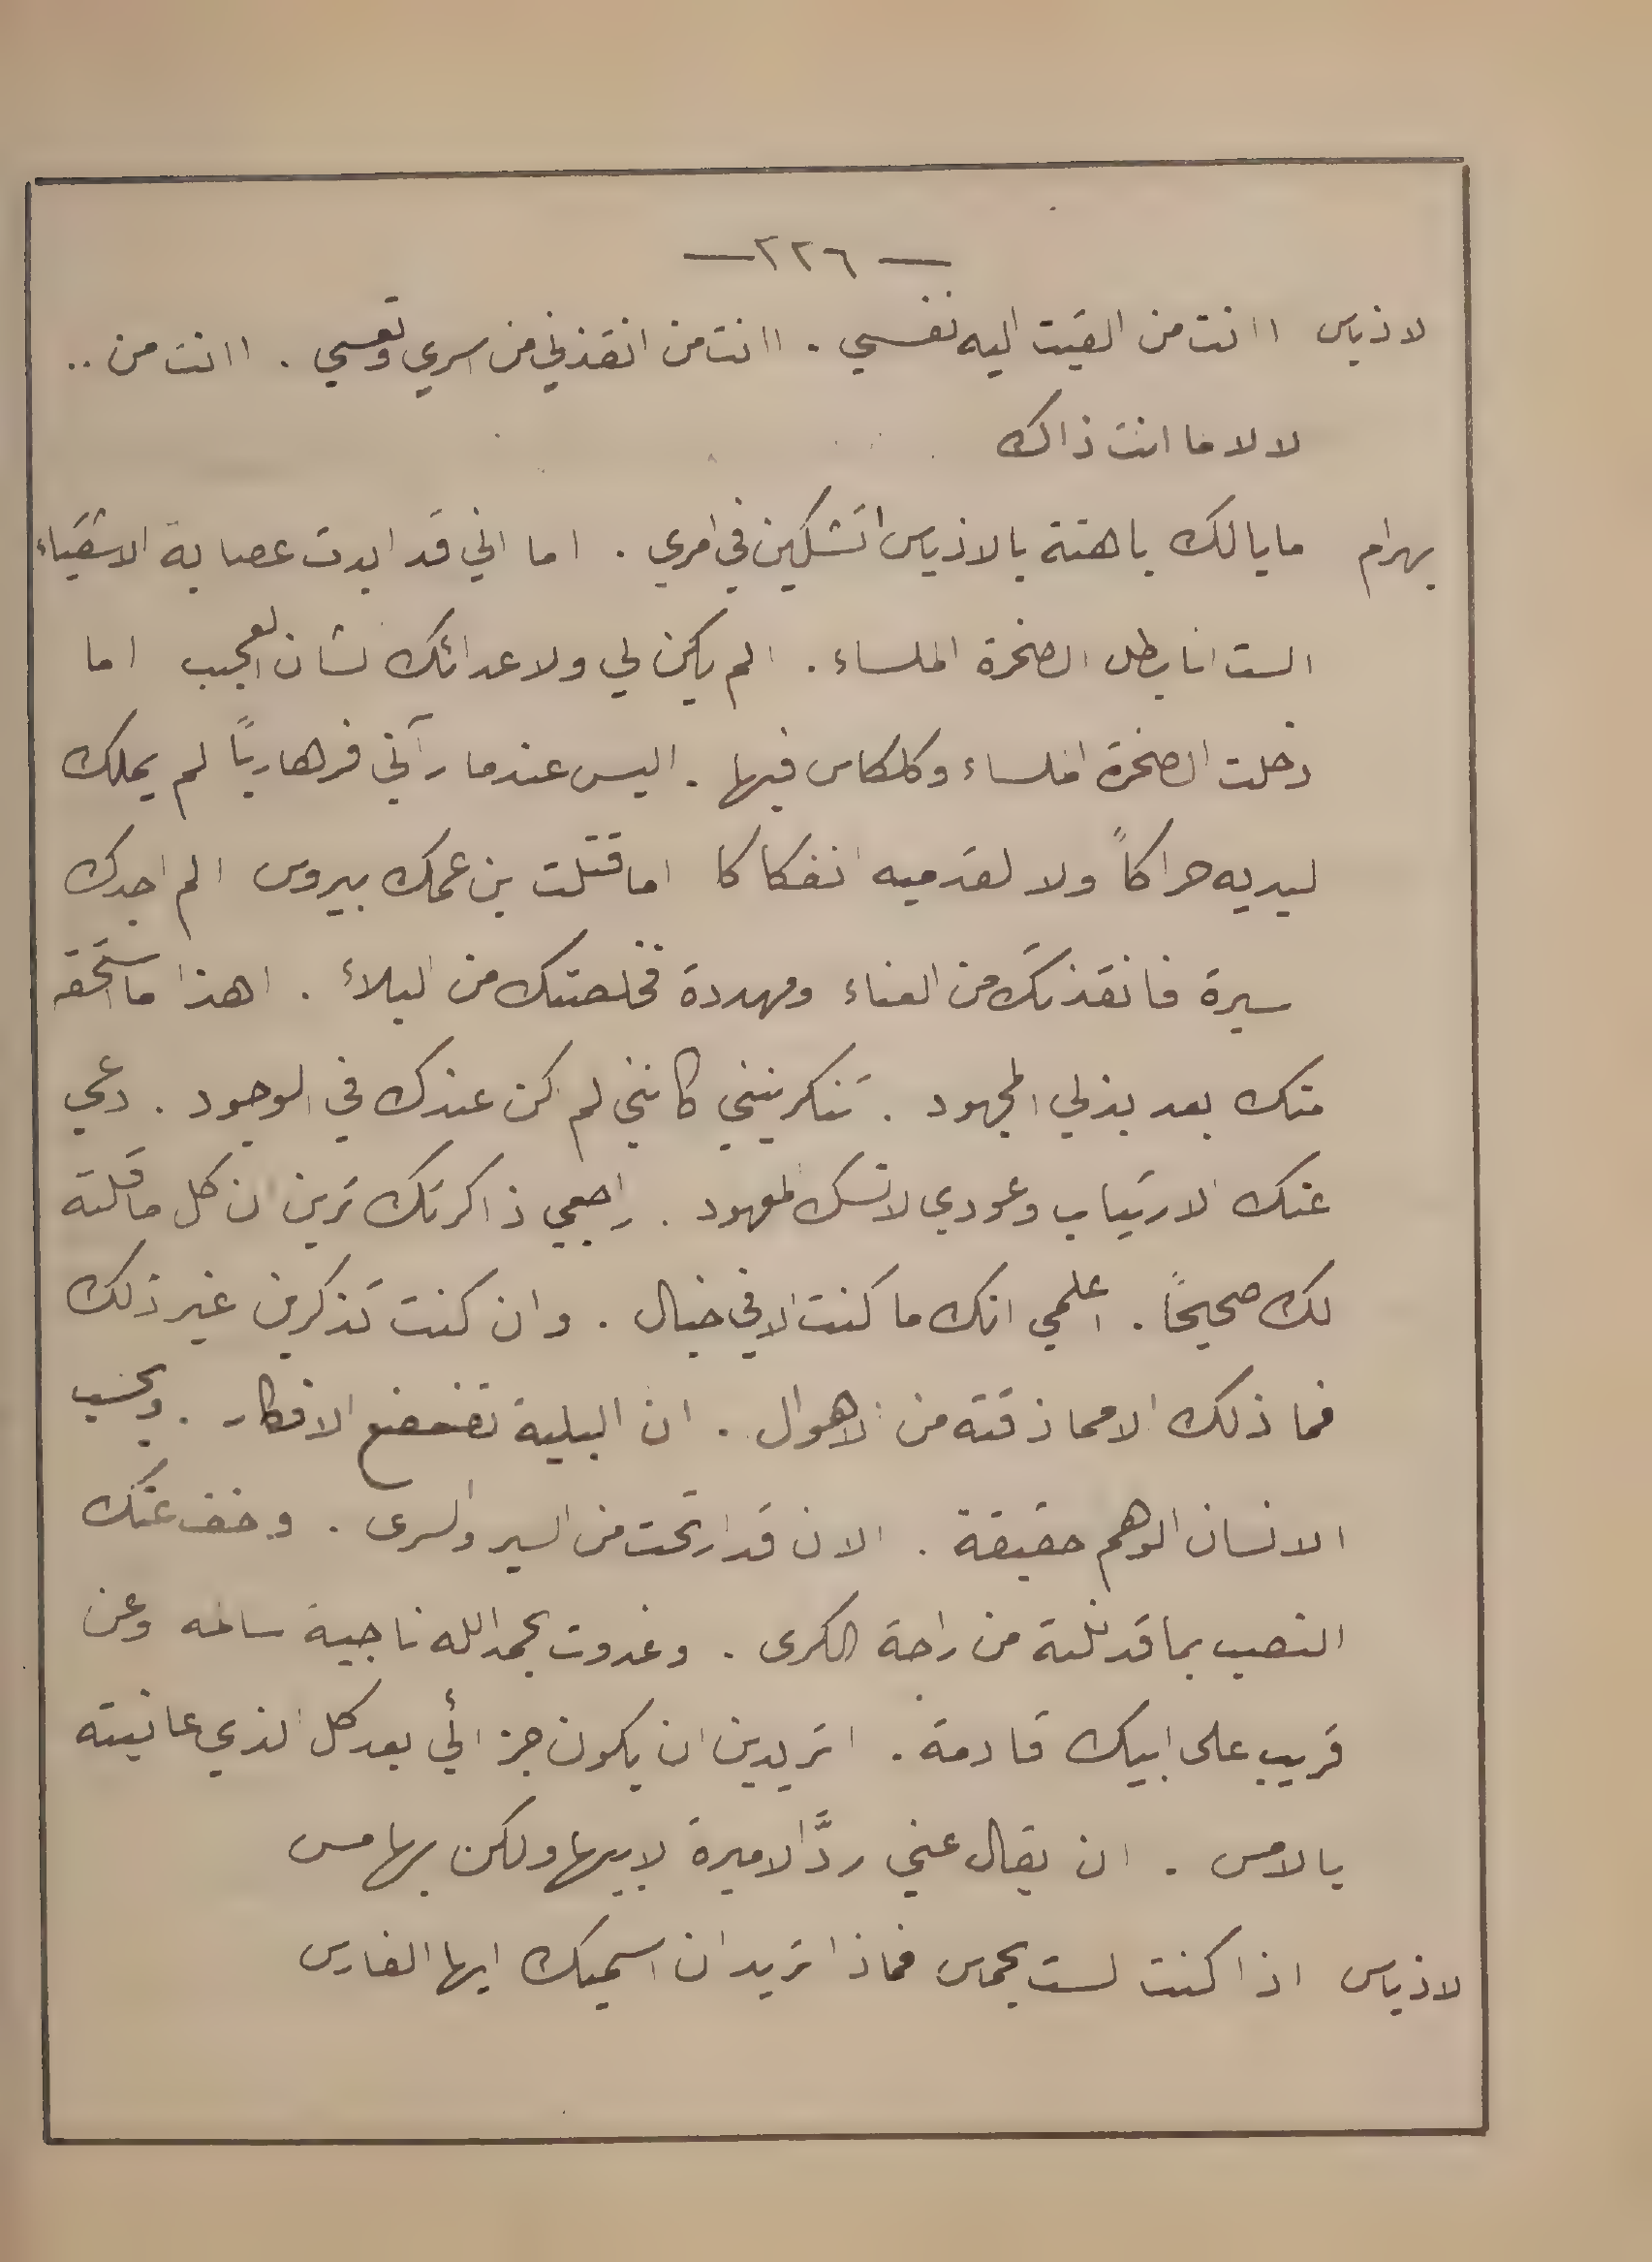 — ٢٢٦ —
لاذياس اانت من القيت اليه نفسي . اانت من انقذني من اسري وتعسي . اانت من ..
لا لا ما انت ذاك
بهرام مابالك باهتة يالاذياس اتشكين في امري . اما اني قد ابدت عصابة الاشقياء
الست انا بطل الصخرة الملساء . الم يكن لي ولاعدائك لشان العجيب اما
دخلت الصخرة الملساء وكلكاس فيها . اليس عندما رآني فر هارباً لم يملك
ليديه حراكاً ولا لقدميه انفكاكا اما قتلت بن عمك بيروس الم اجدك
سيرة فانقذتك من العناء ومهددة فخلصتك من البلاء . اهذا ما استحقه
منك بعد بذلي المجهود . تنكرينني كانني لم اكن عندك في الوجود . دعي
عنك الارتياب وعودي لانسك المعهود . راجعي ذاكرتك ترين ان كل ما قلته
لك صحيحاً . اعلمي انك ما كنت الا في خيال . وان كنت تذكرين غير ذلك
فما ذلك الا مما ذقته من الاهوال . ان البلية تضعضع الافكار . ويحسب
الانسان الوهم حقيقة . الان قد ارتحت من السير والسرى . وخف عنك
التعب بما قد نلته من راحة الكرى . وغدوت بحمد الله ناجية سالمه وعن
قريب على ابيك قادمة . اتريدين ان يكون جزائي بعد كل الذي عانيته
بالامس . ان يقال عني ردَّ الاميرة لابيها ولكن بها مس
لاذياس اذا كنت لست بحماس فماذا تريد ان اسميك ايها الفارس